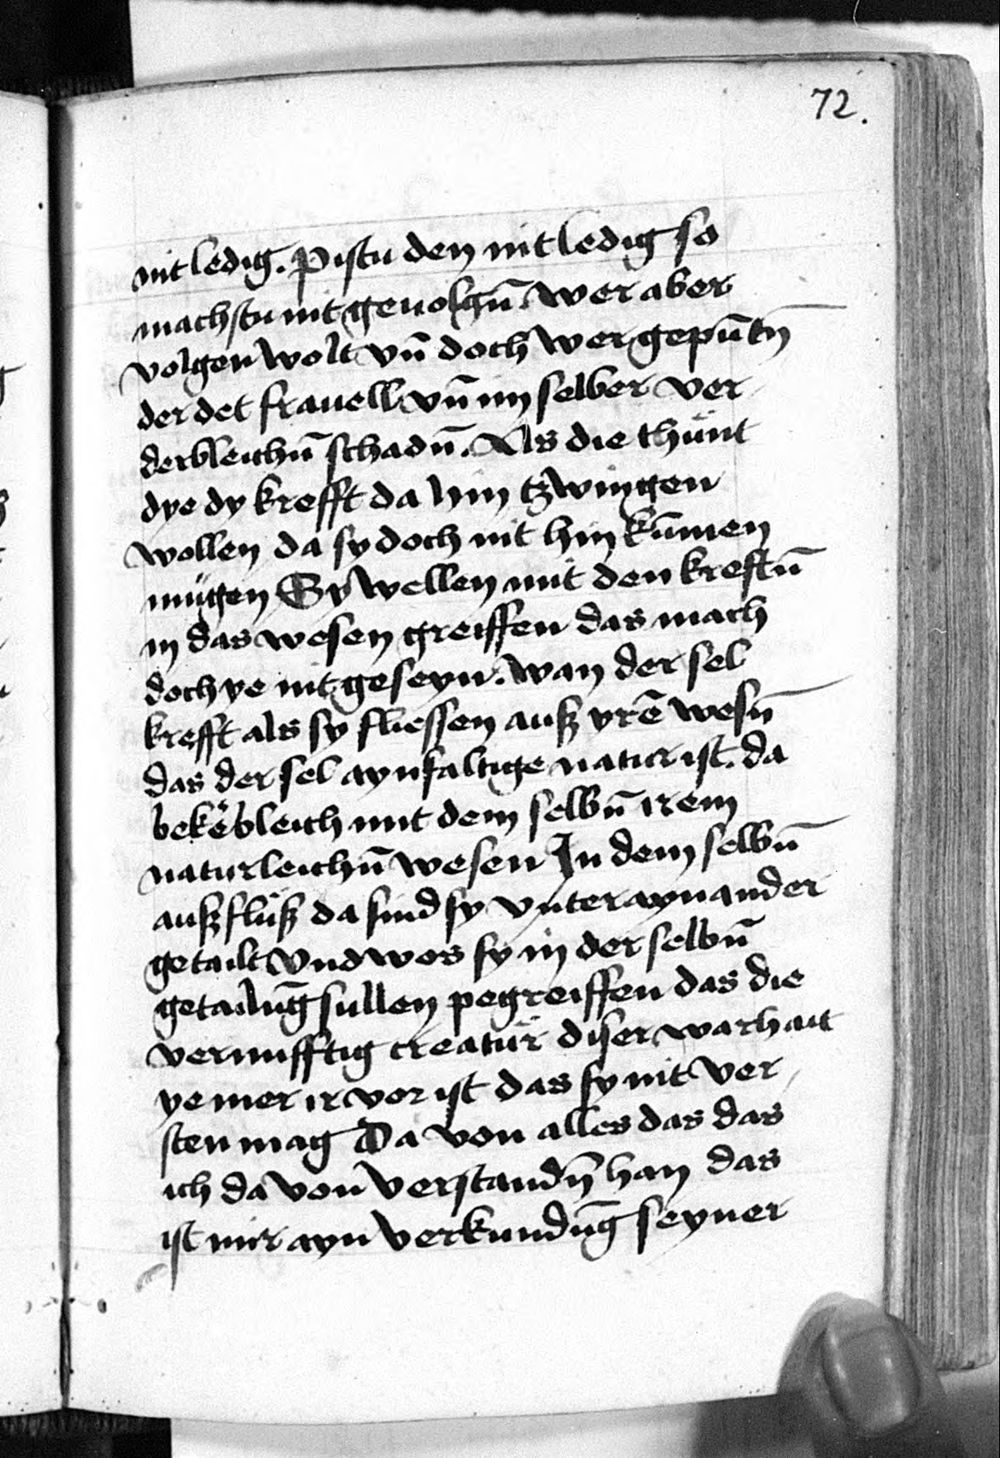 72.
nit ledig. Pistu den nit ledig so
machstu nit geuolgn̄. Wer aber
volgen wolt vn̄ doch wer gepūtn̄
der det frauell vn̄ im selber ver
derbleichn̄ schadn̄. Als die thünt
dye dy krefft da hin tzwingen
wollen da sy doch nit hin kūmen
mügen Sy wellen mit den kreftn̄
in das wesen greiffen das mach
doch ye nit geseyn. Wan der sel
krefft als sy fliessen auß yrē wesn̄
das der sel aynfaltige natur ist. da
bekēbleich mit dem selbn̄ irem
naturleichn̄ wesen In dem selbn̄
außfluß da sind sy vnter aynander
getailt Vnd wos sy in der selbn̄
getailūg sullen pegreiffen das die
vernufftig creatur diser warhait
ye mer ir vor ist das sy nit ver
sten mag Da von alles das das
ich da von verstandn̄ han das
ist mir ayn verkundūg seyner